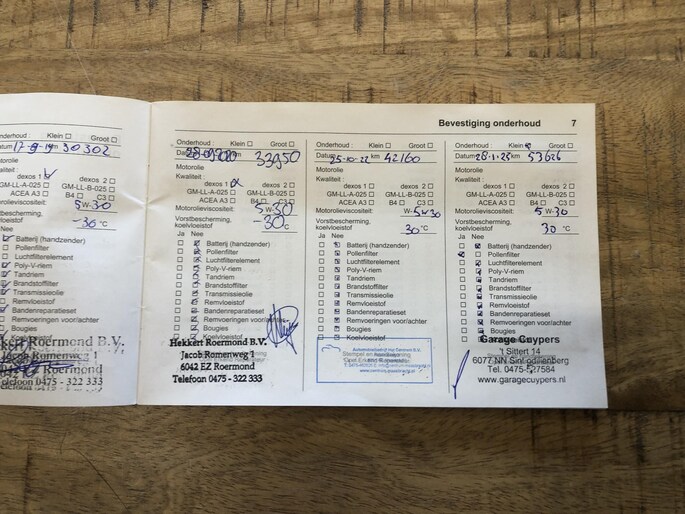 Bevestiging onderhoud 7
Onderhoud : Klein Groot
17-9-19 km 30 302
Motorolie
Kwaliteit :
dexos 1 dexos 2
GM-LL-A-025 GM-LL-B-025
ACEA A3 B4 C3
Motorolieviscositeit: 5W-30
Vorstbescherming,
koelvloeistof -36 °C
Ja Nee
Batterij (handzender)
Pollenfilter
Luchtfilterelement
Poly-V-riem
Tandriem
Brandstoffilter
Transmissieolie
Remvloeistof
Bandenreparatieset
Remvoeringen voor/achter
Roermond B.V.
Jacob Romenweg 1
Roermond
Telefoon 0475 - 322 333
Onderhoud : Klein Groot
Datum 33950
Motorolie
Kwaliteit :
dexos 1 dexos 2
GM-LL-A-025 GM-LL-B-025
ACEA A3 B4 C3
Motorolieviscositeit: 5W-30
Vorstbescherming,
koelvloeistof -30 °C
Ja Nee
Batterij (handzender)
Pollenfilter
Luchtfilterelement
Poly-V-riem
Tandriem
Brandstoffilter
Transmissieolie
Remvloeistof
Bandenreparatieset
Remvoeringen voor/achter
Bougies
Koelvloeistof
Hekkert Roermond B.V.
Jacob Romenweg 1
6042 EZ Roermond
Telefoon 0475 - 322 333
Onderhoud : Klein Groot
Datum 25-10-22 km 42160
Motorolie
Kwaliteit :
dexos 1 dexos 2
GM-LL-A-025 GM-LL-B-025
ACEA A3 B4 C3
Motorolieviscositeit: W-5W30
Vorstbescherming,
koelvloeistof 30 °C
Ja Nee
Batterij (handzender)
Pollenfilter
Luchtfilterelement
Poly-V-riem
Tandriem
Brandstoffilter
Transmissieolie
Remvloeistof
Bandenreparatieset
Remvoeringen voor/achter
Bougies
Onderhoud : Klein Groot
Datum 28-1-25 km 53626
Motorolie
Kwaliteit :
dexos 1 dexos 2
GM-LL-A-025 GM-LL-B-025
ACEA A3 B4 C3
Motorolieviscositeit: 5W-30
Vorstbescherming,
koelvloeistof 30 °C
Ja Nee
Batterij (handzender)
Pollenfilter
Luchtfilterelement
Poly-V-riem
Tandriem
Brandstoffilter
Transmissieolie
Remvloeistof
Bandenreparatieset
Remvoeringen voor/achter
Bougies
Garage Cuypers
't Sittert 14
6077 NN Sint Odiliënberg
Tel. 0475-527584
www.garagecuypers.nl